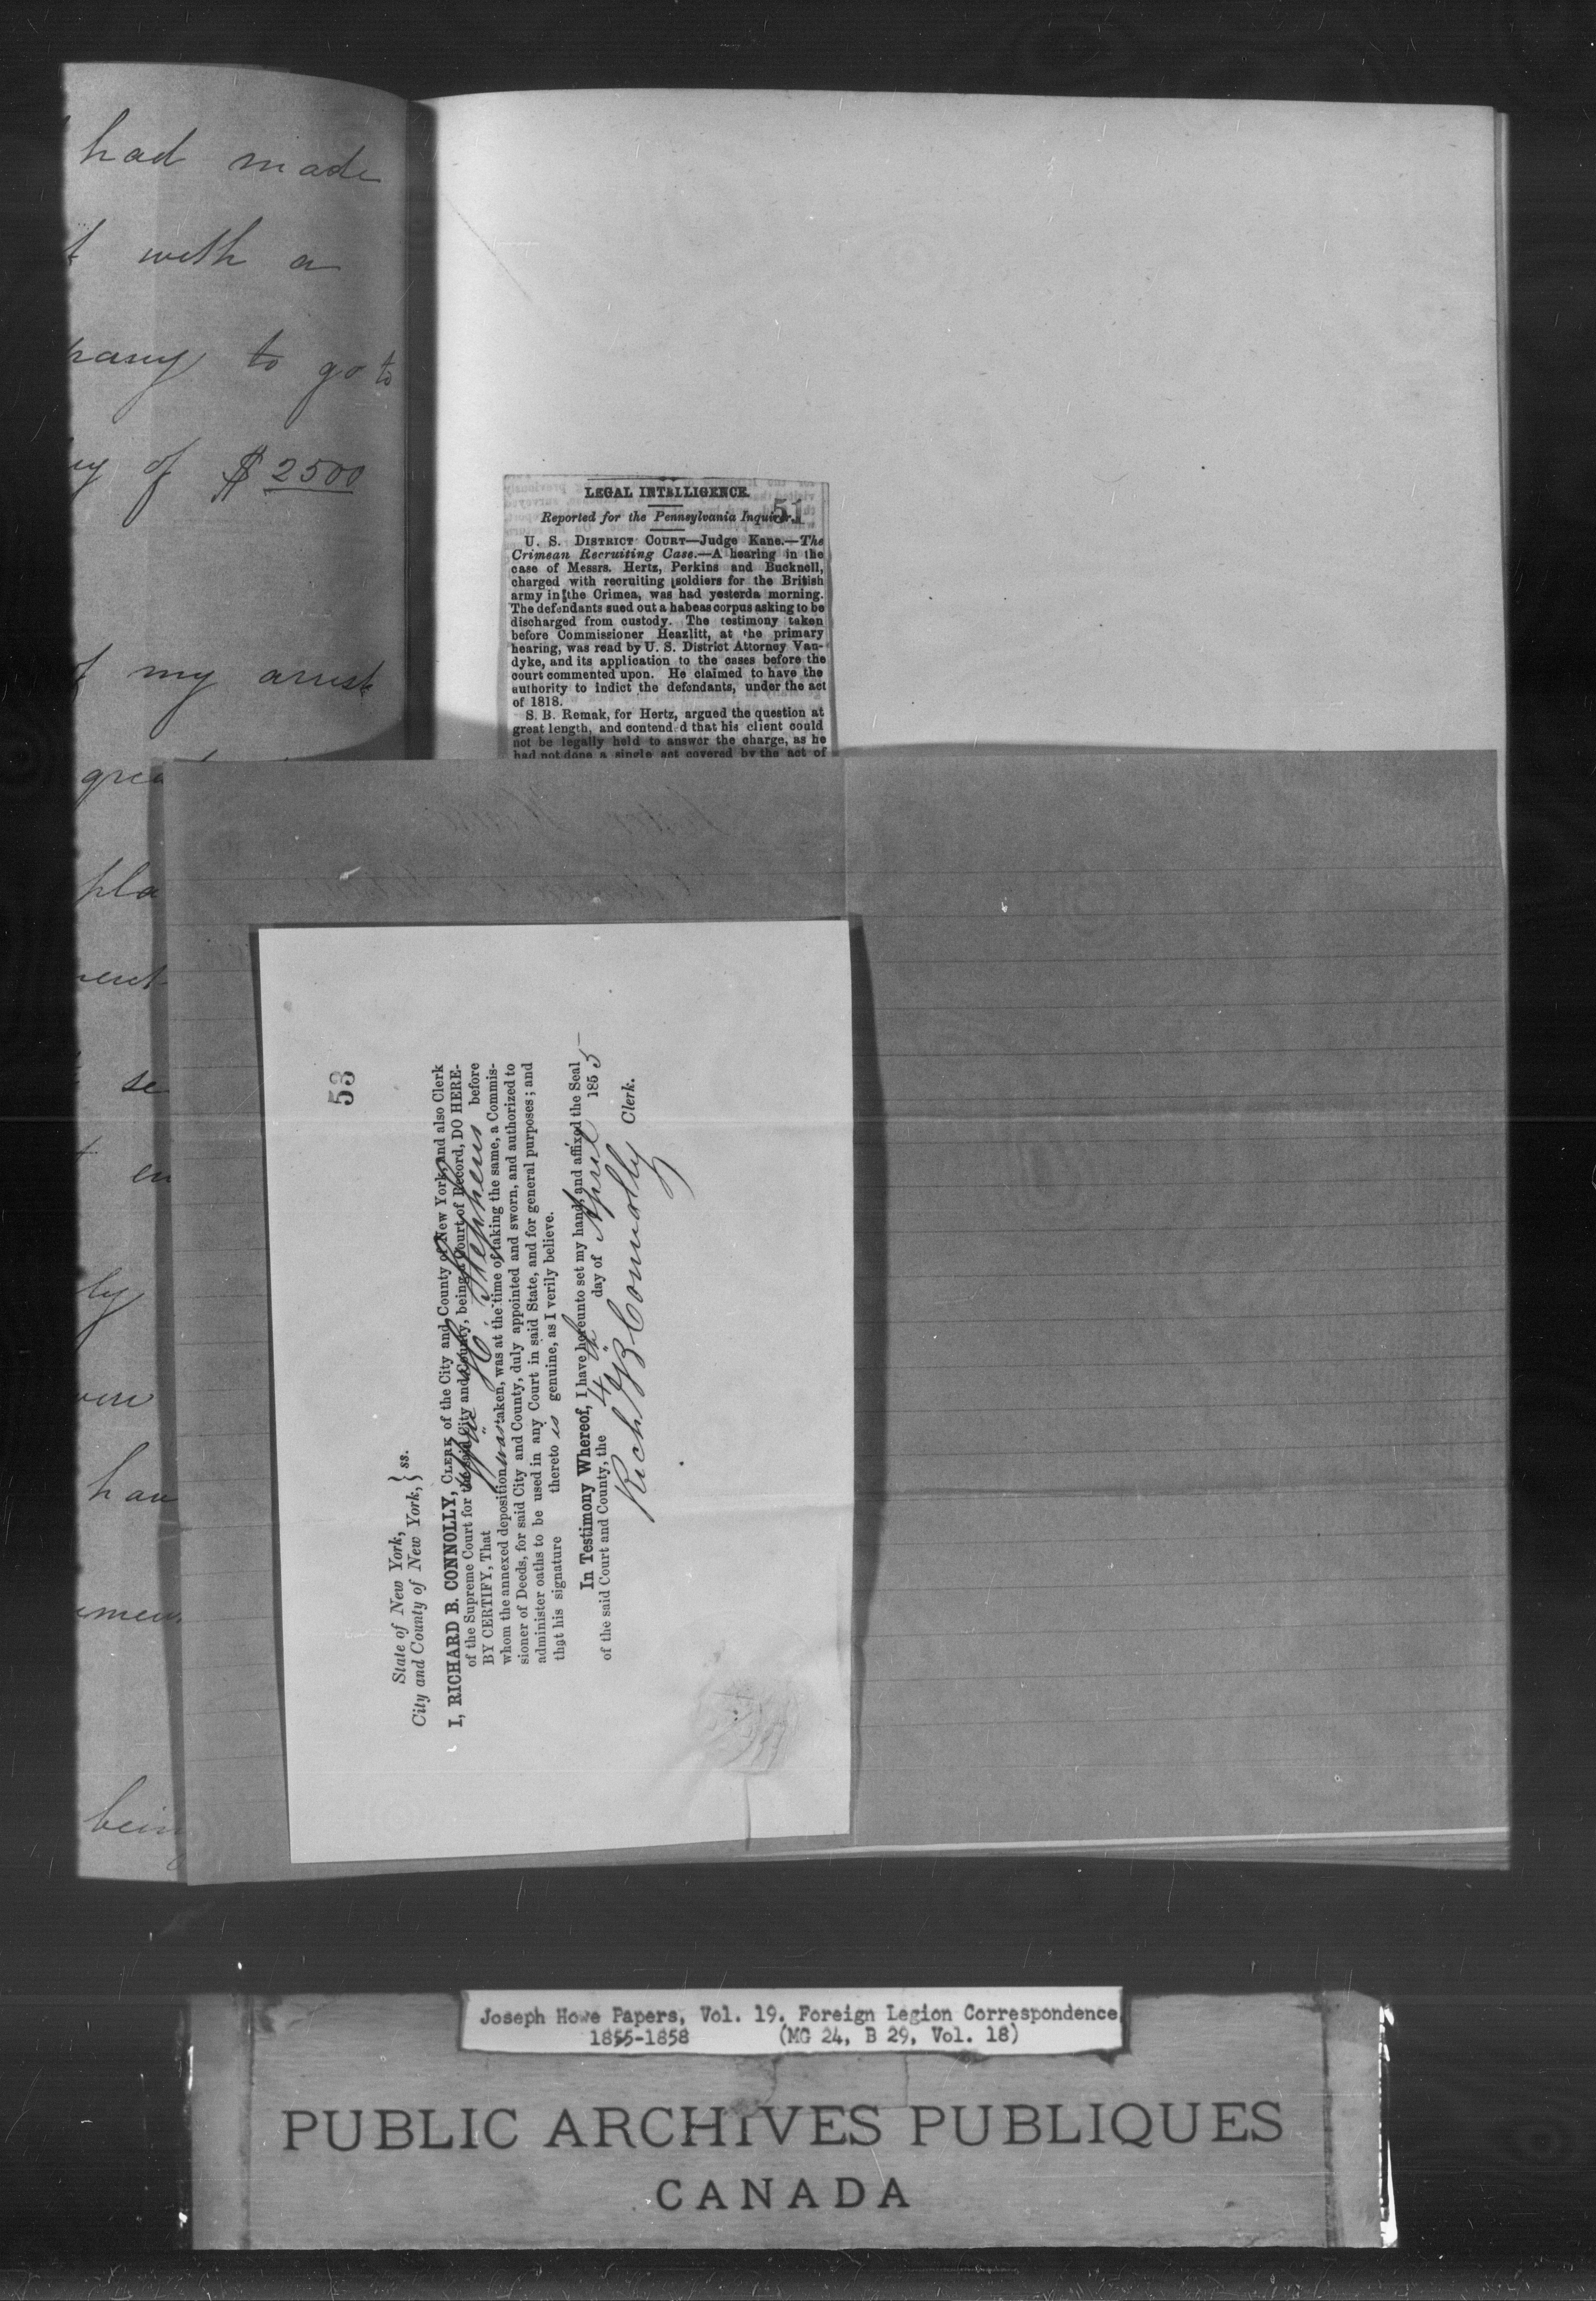 had made
with a
to go to
of $2500
my arrest
pla
se
en
ly
hav
bein
LEGAL INTELLIGENCE.
51
Reported for the Pennsylvania Inquirer.
U. S. DISTRICT COURT—Judge Kane.—The
Crimean Recruiting Case.—A hearing in the
case of Messrs. Hertz, Perkins and Bucknell,
charged with recruiting soldiers for the British
army in the Crimea, was had yesterda morning.
The defendants sued out a habeas corpus asking to be
discharged from custody. The testimony taken
before Commissioner Heazlitt, at the primary
hearing, was read by U. S. District Attorney Van-
dyke, and its application to the cases before the
court commented upon. He claimed to have the
authority to indict the defendants, under the act
of 1818.
S. B. Remak, for Hertz, argued the question at
great length, and contended that his client could
not be legally held to answer the charge, as he
had not done a single act covered by the act of
53
State of New York,
City and County of New York, } ss.
I, RICHARD B. CONNOLLY, CLERK of the City and County of New York, and also Clerk
of the Supreme Court for the said City and County, being a Court of Record, DO HERE-
BY CERTIFY, That H. Stephens before
whom the annexed deposition was taken, was at the time of taking the same, a Commis-
sioner of Deeds, for said City and County, duly appointed and sworn, and authorized to
administer oaths to be used in any Court in said State, and for general purposes; and
that his signature thereto is genuine, as I verily believe.
In Testimony Whereof, I have hereunto set my hand, and affixed the Seal
of the said Court and County, the 4th day of April 1855
Rich B Connolly Clerk.
Joseph Howe Papers, Vol. 19. Foreign Legion Correspondence
1855-1858 (MG 24, B 29, Vol. 18)
PUBLIC ARCHIVES PUBLIQUES
CANADA